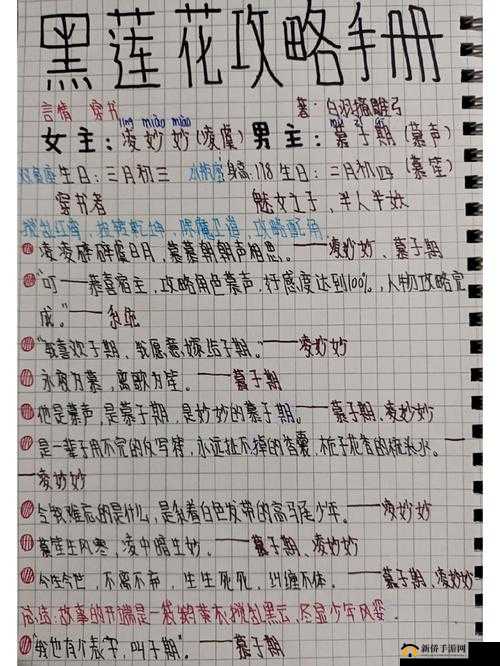 黑莲花攻略手册
言情 穿书 著:白羽摘雕弓
líng miào miào mù zǐ qī
女主:凌妙妙(凌虞) 男主:慕子期(慕声)
双鱼座生日:三月初三 水瓶座身高:178 生日:二月初四(慕笙)
穿书者 魅女之子,半人半妖
,扭转乾坤,除魔卫道,攻略配角
凌凌碌碌虞日月,慕慕朝朝声相思。——凌妙妙、慕子期
"叮——恭喜宿主,攻略角色慕声,好感度达到100%,人物攻略完
成。"——系统
"我喜欢子期,我愿意嫁给子期。"——凌妙妙
永夜为慕,离歌为笙。——慕子期
他是慕声,是慕子期,是妙妙的慕子期。——慕子期、凌妙妙
是一辈子用不完的反写符,永远扯不掉的香囊,栀子花香的梳头水。—
—凌妙妙
令我难忘的是什么,是系着白色发带的高马尾少年。——凌妙妙
慕笙生风寒,凌中暗生妙。——慕子期、凌妙妙
今生今世,不离不弃,生生死死,纠缠不休。——慕子期、凌妙妙
总结:故事的开端是一 黑云,尽显少年风姿.
"我也有个表字,叫子期"——慕子期
新侨手游网